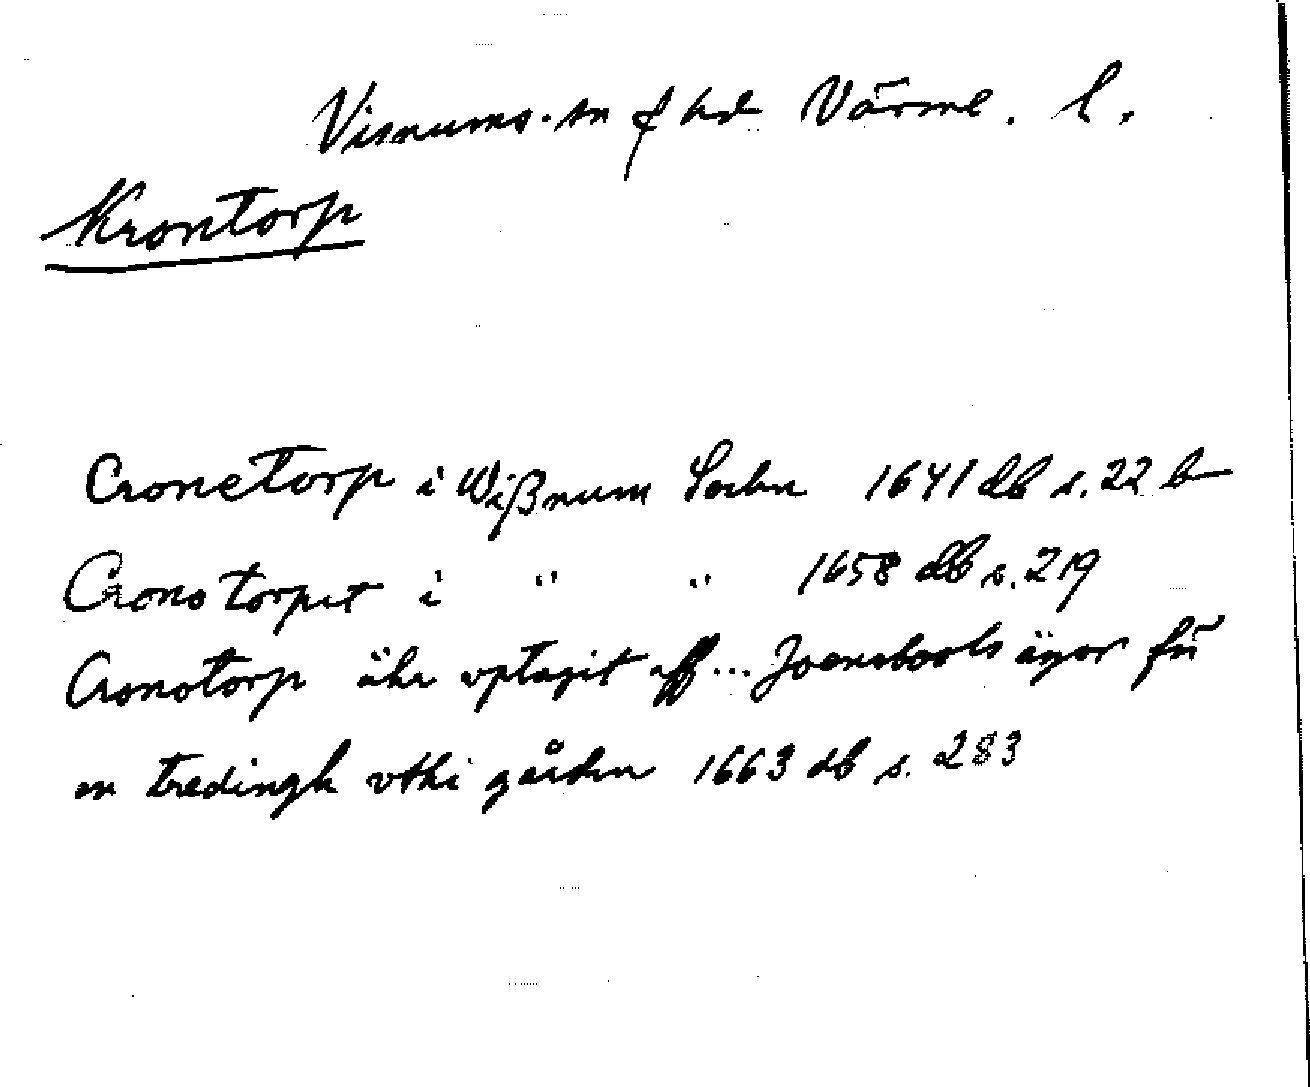 Visnums. sn f hd Värml. l.
Krontorp
Cronetorp i Wißnum Sochn 1641 db s. 22 b
Cronotorpet i " " 1658 db s. 219
Cronotorp ähr vptagit aff... Joensbools ägor för
en tredingh vthi gården 1663 db s. 283